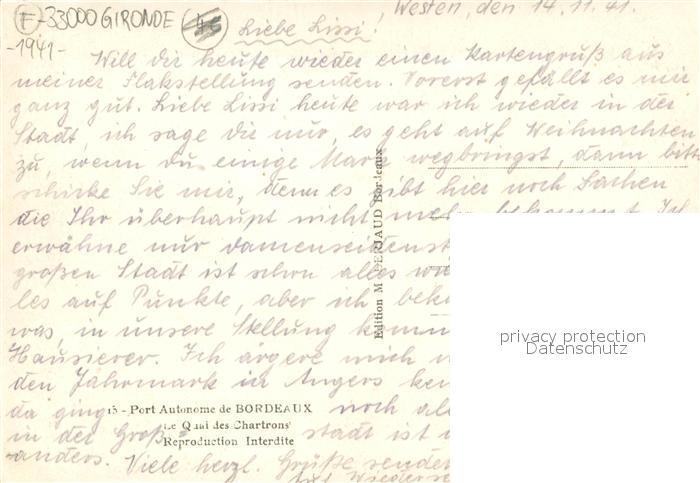 F-33000 GIRONDE
-1941-
Westen, den 14.11.41.
Liebe Lissi!
Will dir heute wieder einen Kartengruß aus
meiner Flakstellung senden. Vorerst gefällt es mir
ganz gut. Liebe Lissi heute war ich wieder in der
Stadt, ich sage dir nur, es geht auf Weihnachten
zu, wenn du einige Mark wegbringst, dann bitte
schicke Sie mir, denn es gibt hier noch Sachen
die Ihr überhaupt nicht mehr bekommt. Ich
erwähne nur Damenseidenst
großen Stadt ist schon alles
les auf Punkte, aber ich bek
was, in unsere Stellung komm
Hausierer. Ich ärgere mich
den Jahrmarkt in Angers
da ging noch al
in der Großstadt ist
anders. Viele herzl. Grüße sendet
Auf Wiederse
Edition M. DERJAUD Bordeaux
13 - Port Autonome de BORDEAUX
Le Quai des Chartrons
Reproduction Interdite
privacy protection
Datenschutz